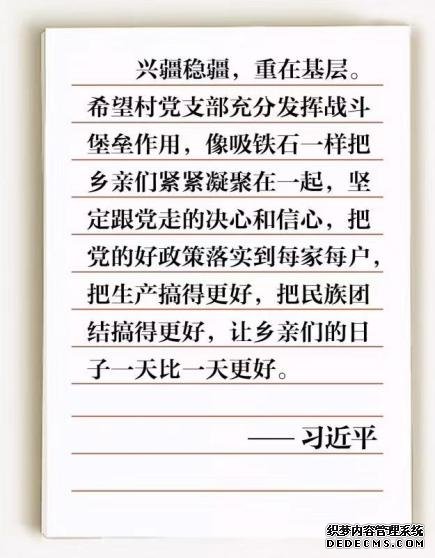 兴疆稳疆，重在基层。
希望村党支部充分发挥战斗
堡垒作用，像吸铁石一样把
乡亲们紧紧凝聚在一起，坚
定跟党走的决心和信心，把
党的好政策落实到每家每户，
把生产搞得更好，把民族团
结搞得更好，让乡亲们的日
子一天比一天更好。
—— 习近平
织梦内容管理系统
DEDECMS.COM